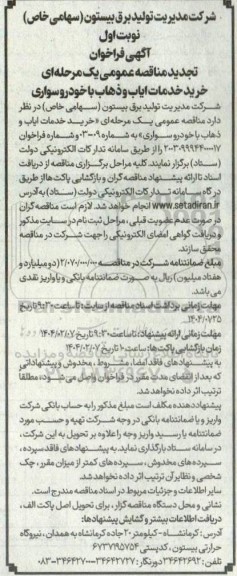 شرکت مدیریت تولید برق بیستون (سهامی خاص)
نوبت اول
آگهی فراخوان
تجدید مناقصه عمومی یک مرحله‌ای
خرید خدمات ایاب و ذهاب با خودرو سواری
شرکت مدیریت تولید برق بیستون (سهامی خاص) در نظر
دارد مناقصه عمومی یک مرحله‌ای «خرید خدمات ایاب و
ذهاب با خودرو سواری» به شماره ۰۳-۰۰۹ و شماره فراخوان
۲۰۰۳۰۹۹۹۴۴۰۰۰۰۱۷ را از طریق سامانه تدارکات الکترونیکی دولت
(ستاد) برگزار نمایند. کلیه مراحل برگزاری مناقصه از دریافت
اسناد تا ارائه پیشنهاد مناقصه گران و بازگشایی پاکت ها از طریق
درگاه سامانه تدارکات الکترونیکی دولت (ستاد) به آدرس
www.setadiran.ir انجام خواهد شد. لازم است مناقصه گران
در صورت عدم عضویت قبلی، مراحل ثبت نام در سایت مذکور
و دریافت گواهی امضای الکترونیکی را جهت شرکت در مناقصه
محقق سازند.
مبلغ ضمانتنامه شرکت در مناقصه ۲/۰۷۰/۰۰۰/۰۰۰ (دو میلیارد و
هفتاد میلیون) ریال به صورت ضمانتنامه بانکی و یا واریز نقدی
می باشد.
مهلت زمانی برداشت اسناد مناقصه از سایت: تا ساعت ۹:۳۰ تاریخ
مهلت زمانی ارائه پیشنهاد: تا ساعت ۹:۳۰ تاریخ ۱۴۰۴/۰۲/۰۷
زمان بازگشایی پاکت ها: ساعت ۱۰ تاریخ ۱۴۰۴/۰۲/۰۷
به پیشنهادهای فاقد امضاء، مشروط، مخدوش و پیشنهاداتی
که بعد از انقضای مدت مقرر در فراخوان واصل می شود، مطلقا
ترتیب اثر داده نخواهد شد.
پیشنهاد دهنده مکلف است مبلغ مذکور را به حساب بانکی شرکت
واریز و یا ضمانتنامه بانکی در وجه شرکت تهیه و حسب مورد
ضمانتنامه یا رسید واریز وجه را علاوه بر تحویل به این شرکت،
در سامانه ستاد بارگذاری نماید. به پیشنهادهای فاقد سپرده،
سپرده های مخدوش، سپرده های کمتر از میزان مقرر، چک
شخصی و نظایر آن ترتیب اثر داده نخواهد شد.
سایر اطلاعات و جزئیات مربوط در اسناد مناقصه مندرج است.
نشانی و محل دستگاه مناقصه گزار، برای تحویل اصل پاکت الف،
دریافت اطلاعات بیشتر و گشایش پیشنهادها:
آدرس: کرمانشاه- کیلومتر ۲۰ جاده کرمانشاه به همدان، نیروگاه
حرارتی بیستون، کدپستی ۶۷۳۷۱۹۵۷۵۴